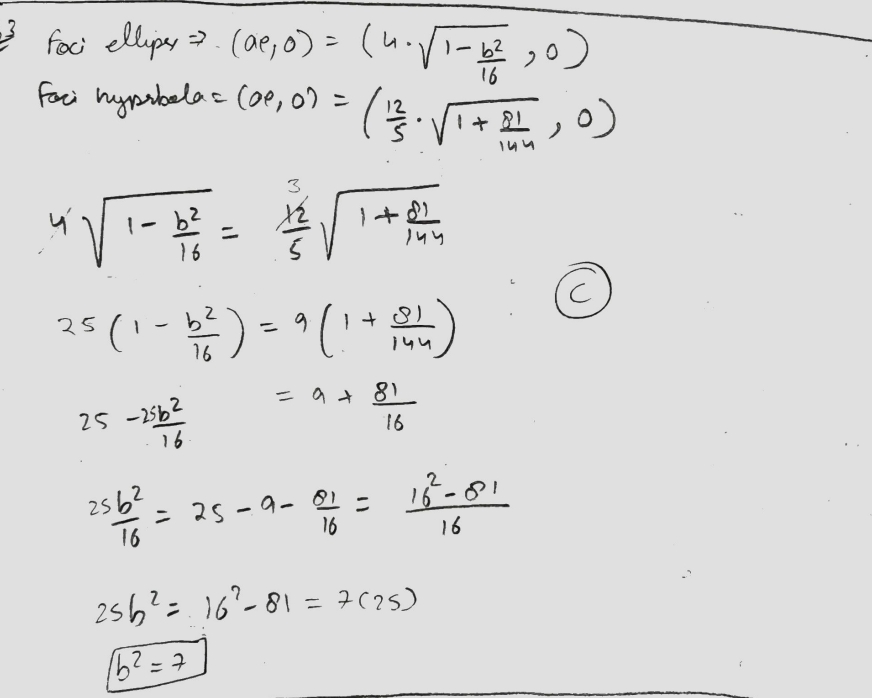 Foci ellipse ⇒ (ae, 0) = (4·√(1 - b²/16), 0)
Foci hyperbola = (ae, 0) = (12/5·√(1 + 81/144), 0)
4√(1 - b²/16) = 3 12/5 √(1 + 81/144)
25(1 - b²/16) = 9(1 + 81/144)
C
25 - 25b²/16 = 9 + 81/16
25b²/16 = 25 - 9 - 81/16 = (16² - 81)/16
25b² = 16² - 81 = 7(25)
b² = 7